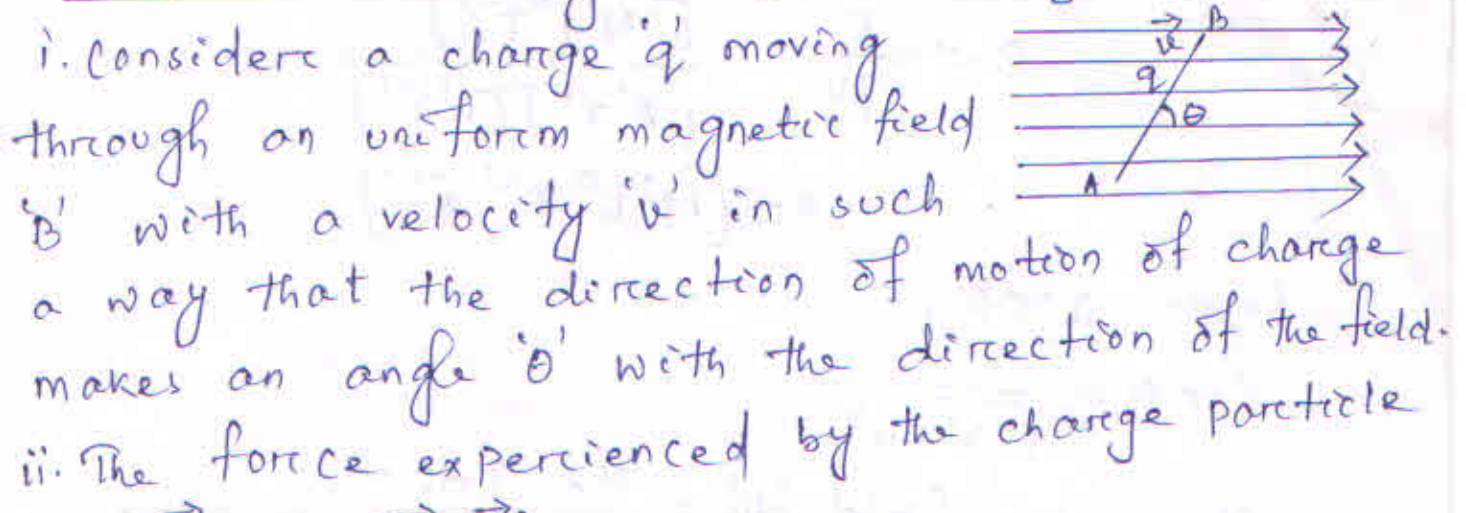 i. Consider a charge 'q' moving
through an uniform magnetic field
'B' with a velocity 'v' in such
a way that the direction of motion of charge
makes an angle 'θ' with the direction of the field.
ii. The force experienced by the charge particle
v⃗ B
q
θ
A